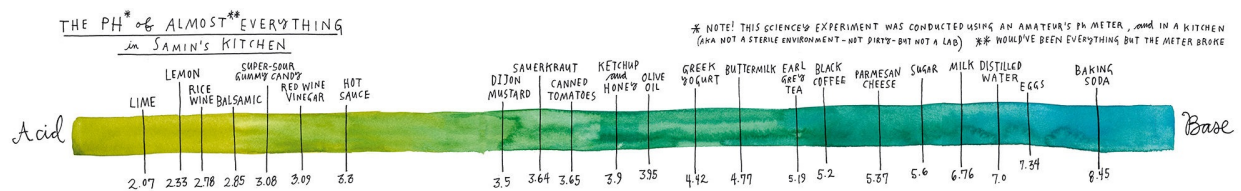 THE PH* of ALMOST** EVERYTHING
in SAMIN'S KITCHEN
* NOTE! THIS SCIENCEY EXPERIMENT WAS CONDUCTED USING AN AMATEUR'S PH METER, and IN A KITCHEN
(AKA NOT A STERILE ENVIRONMENT - NOT DIRTY - BUT NOT A LAB) ** WOULD'VE BEEN EVERYTHING BUT THE METER BROKE
Acid
LIME
LEMON
RICE
WINE
BALSAMIC
SUPER-SOUR
GUMMY CANDY
RED WINE
VINEGAR
HOT
SAUCE
DIJON
MUSTARD
SAUERKRAUT
CANNED
TOMATOES
KETCHUP
and
HONEY
OLIVE
OIL
GREEK
YOGURT
BUTTERMILK
EARL
GREY
TEA
BLACK
COFFEE
PARMESAN
CHEESE
SUGAR
MILK
DISTILLED
WATER
EGGS
BAKING
SODA
Base
2.07
2.33
2.78
2.85
3.08
3.09
3.3
3.5
3.64
3.65
3.9
3.95
4.42
4.77
5.19
5.2
5.37
5.6
6.76
7.0
7.34
8.45